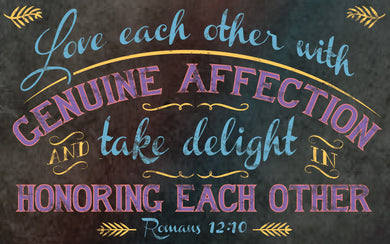 Love each other with
GENUINE AFFECTION
AND take delight IN
HONORING EACH OTHER
Romans 12:10